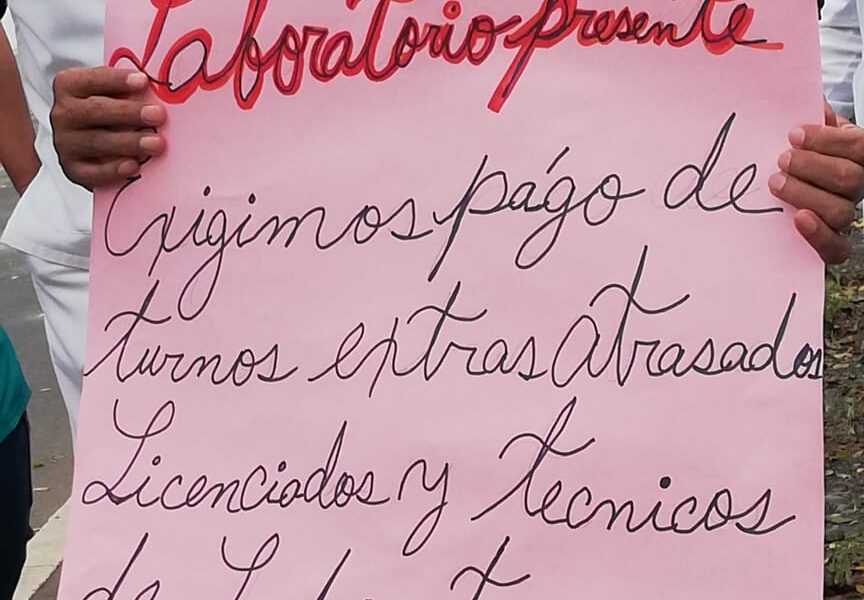 Laboratorio presente
Exigimos págo de
turnos extras atrasados
Licenciados y tecnicos
de